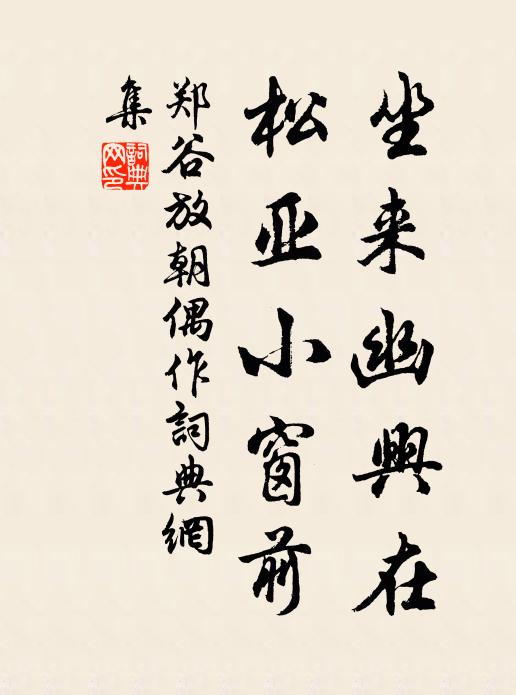 坐来幽興在
松亚小窗前
郑谷放朝偶作詞典網
集
詞典網印